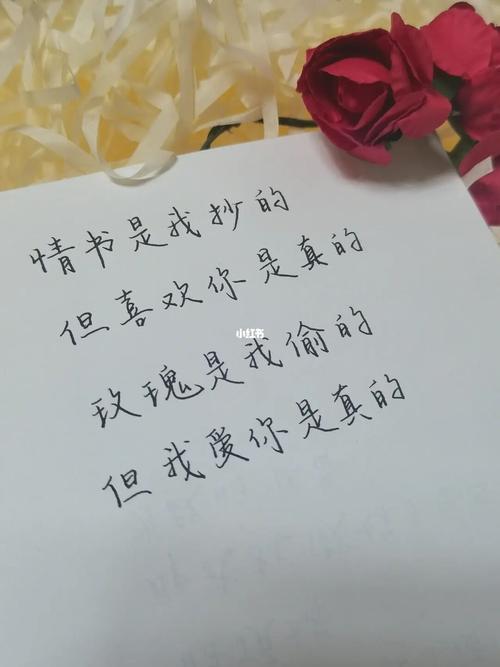 情书是我抄的
但喜欢你是真的
小红书
玫瑰是我偷的
但我爱你是真的